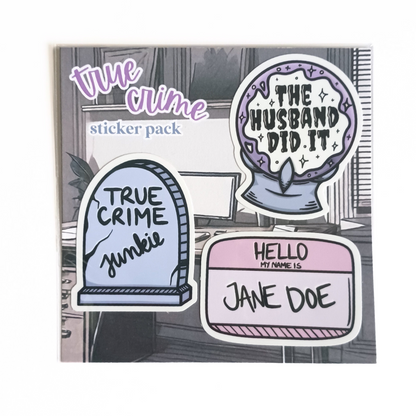 true
crime
sticker pack
THE
HUSBAND
DID IT
TRUE
CRIME
junkie
HELLO
MY NAME IS
JANE DOE